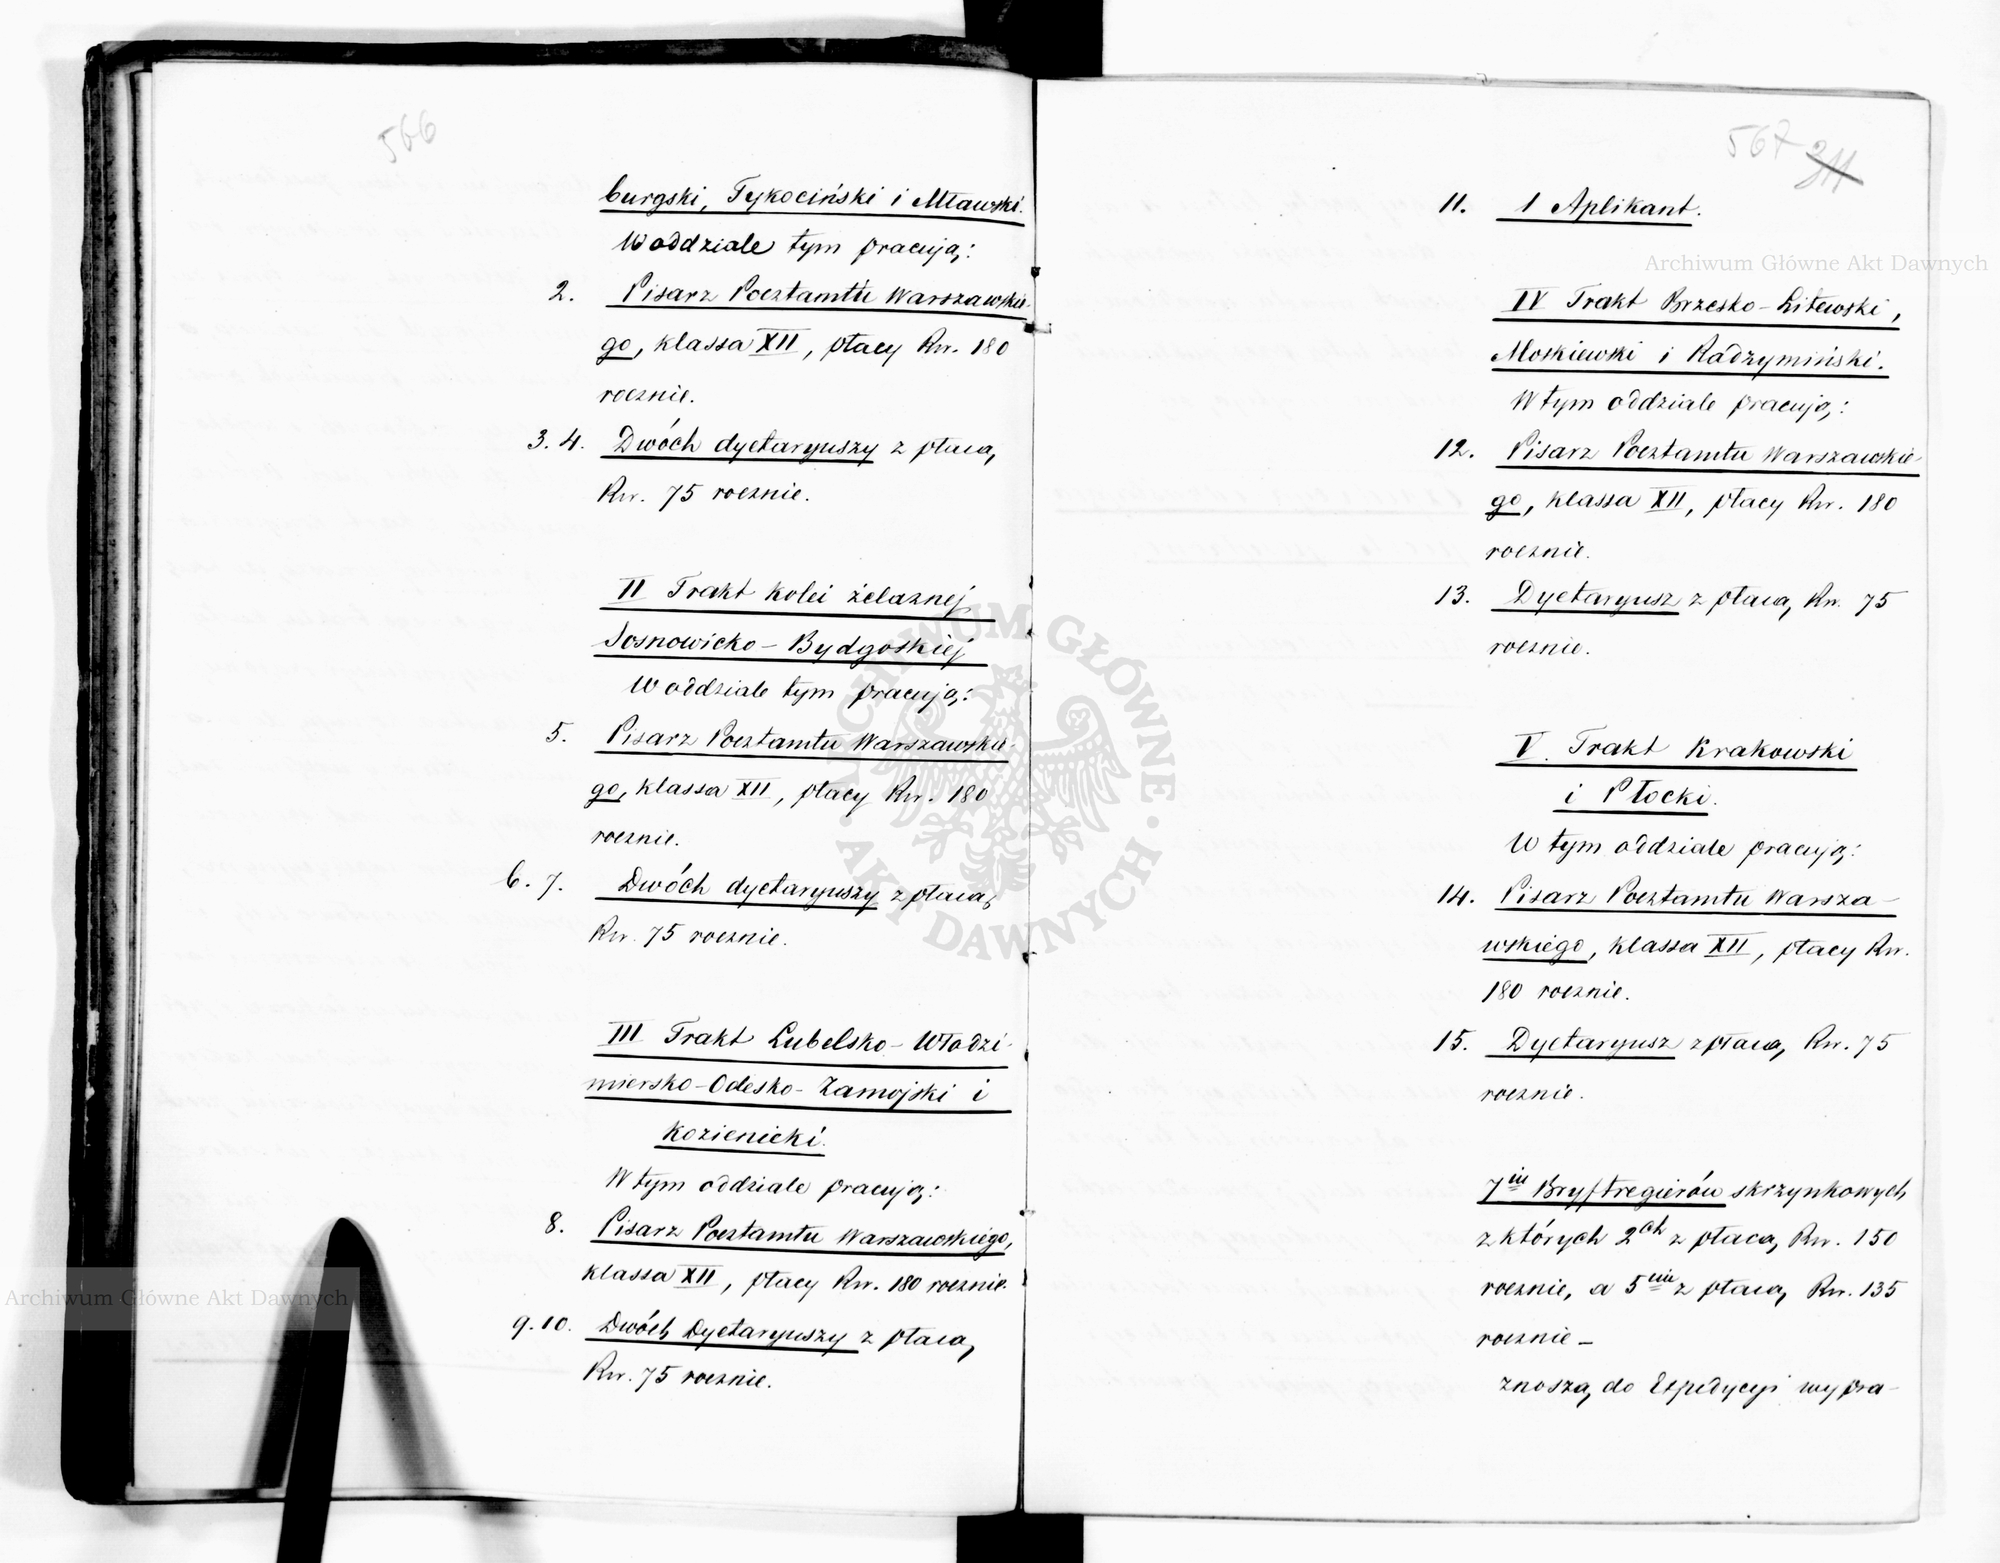 566
burgski, Tykociński i Mławski.
W oddziale tym pracują:
2. Pisarz Pocztamtu Warszawskie-
go, klassa XII, płacy Rsr. 180
rocznie.
3. 4. Dwóch dyetaryuszy z płacą
Rsr. 75 rocznie.
II Trakt Kolei żelaznej
Sosnowicko-Bydgoskiej
W oddziale tym pracują:
5. Pisarz Pocztamtu Warszawskie-
go, klassa XII, płacy Rsr. 180
rocznie.
6. 7. Dwóch dyetaryuszy z płacą
Rsr. 75 rocznie.
III Trakt Lubelsko-Włodzi-
miersko-Odesko-Zamojski i
Kozienicki.
W tym oddziale pracują:
8. Pisarz Pocztamtu Warszawskiego,
klassa XII, płacy Rsr. 180 rocznie.
9. 10. Dwóch Dyetaryuszy z płacą
Rsr. 75 rocznie.
567 311
11. 1 Aplikant.
IV Trakt Brzesko-Litewski,
Moskiewski i Radzymiński.
W tym oddziale pracują:
12. Pisarz Pocztamtu Warszawskie-
go, klassa XII, płacy Rsr. 180
rocznie.
13. Dyetaryusz z płacą Rsr. 75
rocznie.
V. Trakt Krakowski
i Płocki.
W tym oddziale pracują:
14. Pisarz Pocztamtu Warsza-
wskiego, klassa XII, płacy Rsr.
180 rocznie.
15. Dyetaryusz z płacą Rsr. 75
rocznie.
7iu Bryftregierów skrzynkowych
z których 2ch z płacą Rsr. 150
rocznie, a 5ciu z płacą Rsr. 135
rocznie –
znoszą do Expedycyi wypra-
Archiwum Główne Akt Dawnych
Archiwum Główne Akt Dawnych
ARCHIWUM GŁÓWNE AKT DAWNYCH